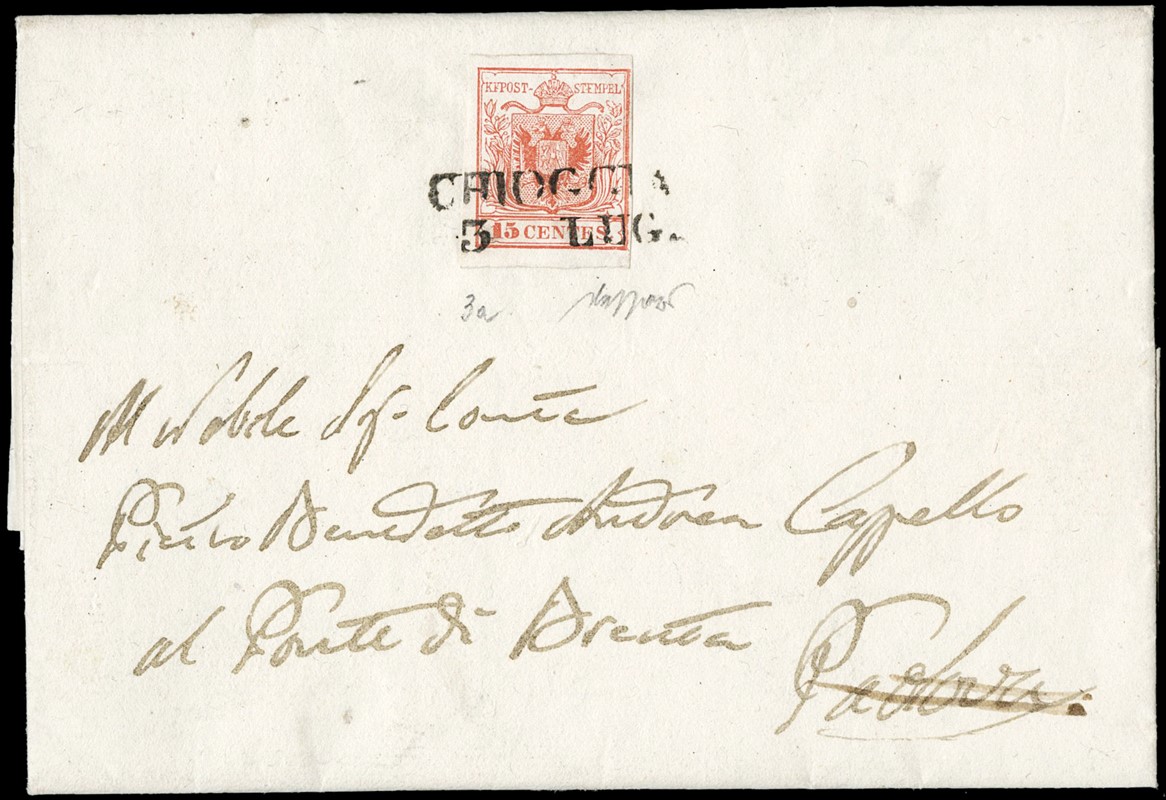 KKPOST-STEMPEL
CHIOGGIA
15 CENTES.
3 LUG.
3a
Al Nobile Sig.r Conte
Pietro Benedetto Andrea Cappello
al Ponte di Brenta
Padova.